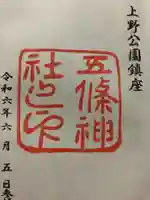 上野公園鎮座
五條神
社之印
令和六年六月五日参